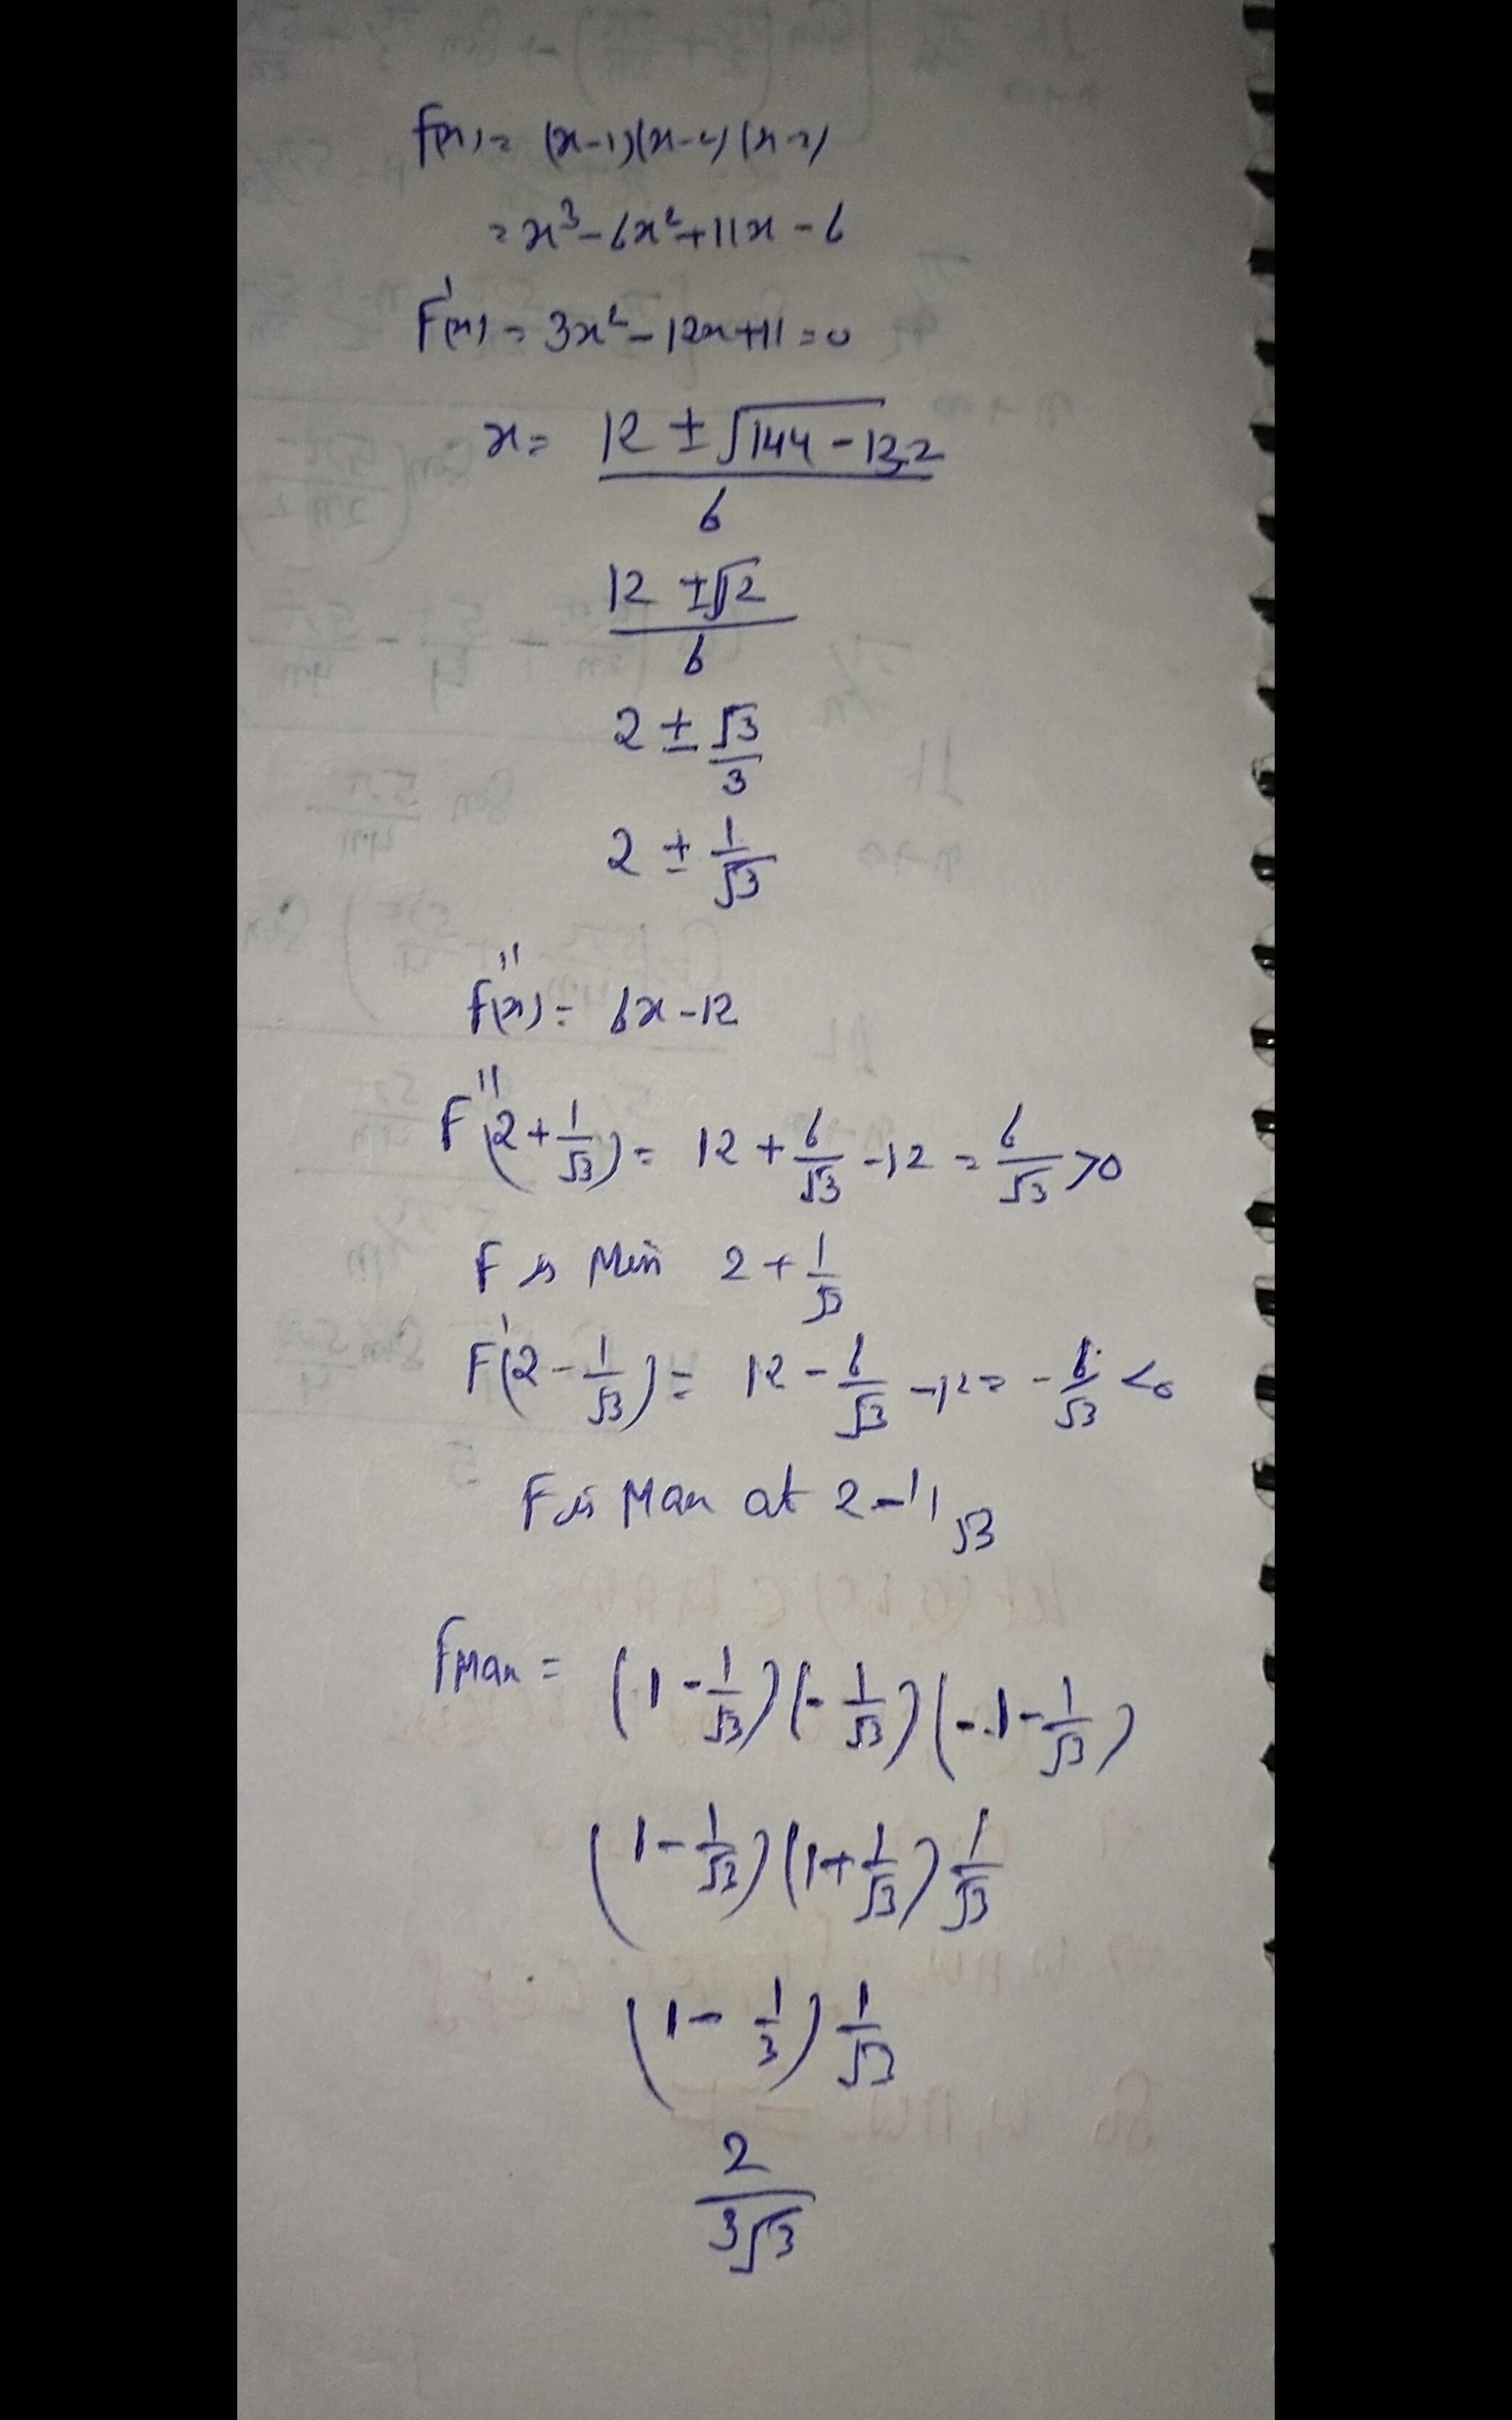 f(x) = (x-1)(x-2)(x-3)
= x³-6x²+11x-6
F'(x) = 3x²-12x+11=0
x = 12 ± √144-132
6
12 ±√12
6
2 ± √3
3
2 ± 1
√3
f''(x) = 6x-12
F''(2+1/√3) = 12+6/√3-12 = 6/√3 >0
F is Min 2+1/√3
F'(2-1/√3) = 12-6/√3-12 = -6/√3 <0
F is Max at 2-1/√3
fMax = (1-1/√3)(-1/√3)(-1-1/√3)
(1-1/√3)(1+1/√3)1/√3
(1-1/3)1/√3
2
3√3